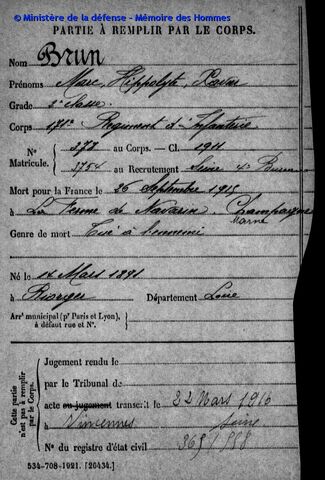 © Ministère de la défense - Mémoire des Hommes
PARTIE À REMPLIR PAR LE CORPS.
Nom Brun
Prénoms Marc, Hippolyte, Xavier
Grade 2e Classe.
Corps 171e Régiment d'Infanterie
N° 277 au Corps. — Cl. 1911
Matricule. 1754 au Recrutement Seine 4e Bureau
Mort pour la France le 26 Septembre 1915
à La Ferme de Navarin, Champagne
Marne
Genre de mort Tué à l'ennemi
Né le 14 Mars 1891
à Riorges Département Loire
Arrt municipal (pr Paris et Lyon),
à défaut rue et N°.
Cette partie n'est pas à remplir par le Corps.
Jugement rendu le
par le Tribunal de
acte ou jugement transcrit le 22 Mars 1916
à Vincennes Seine
N° du registre d'état civil 365/888
534-708-1921. [26434.]